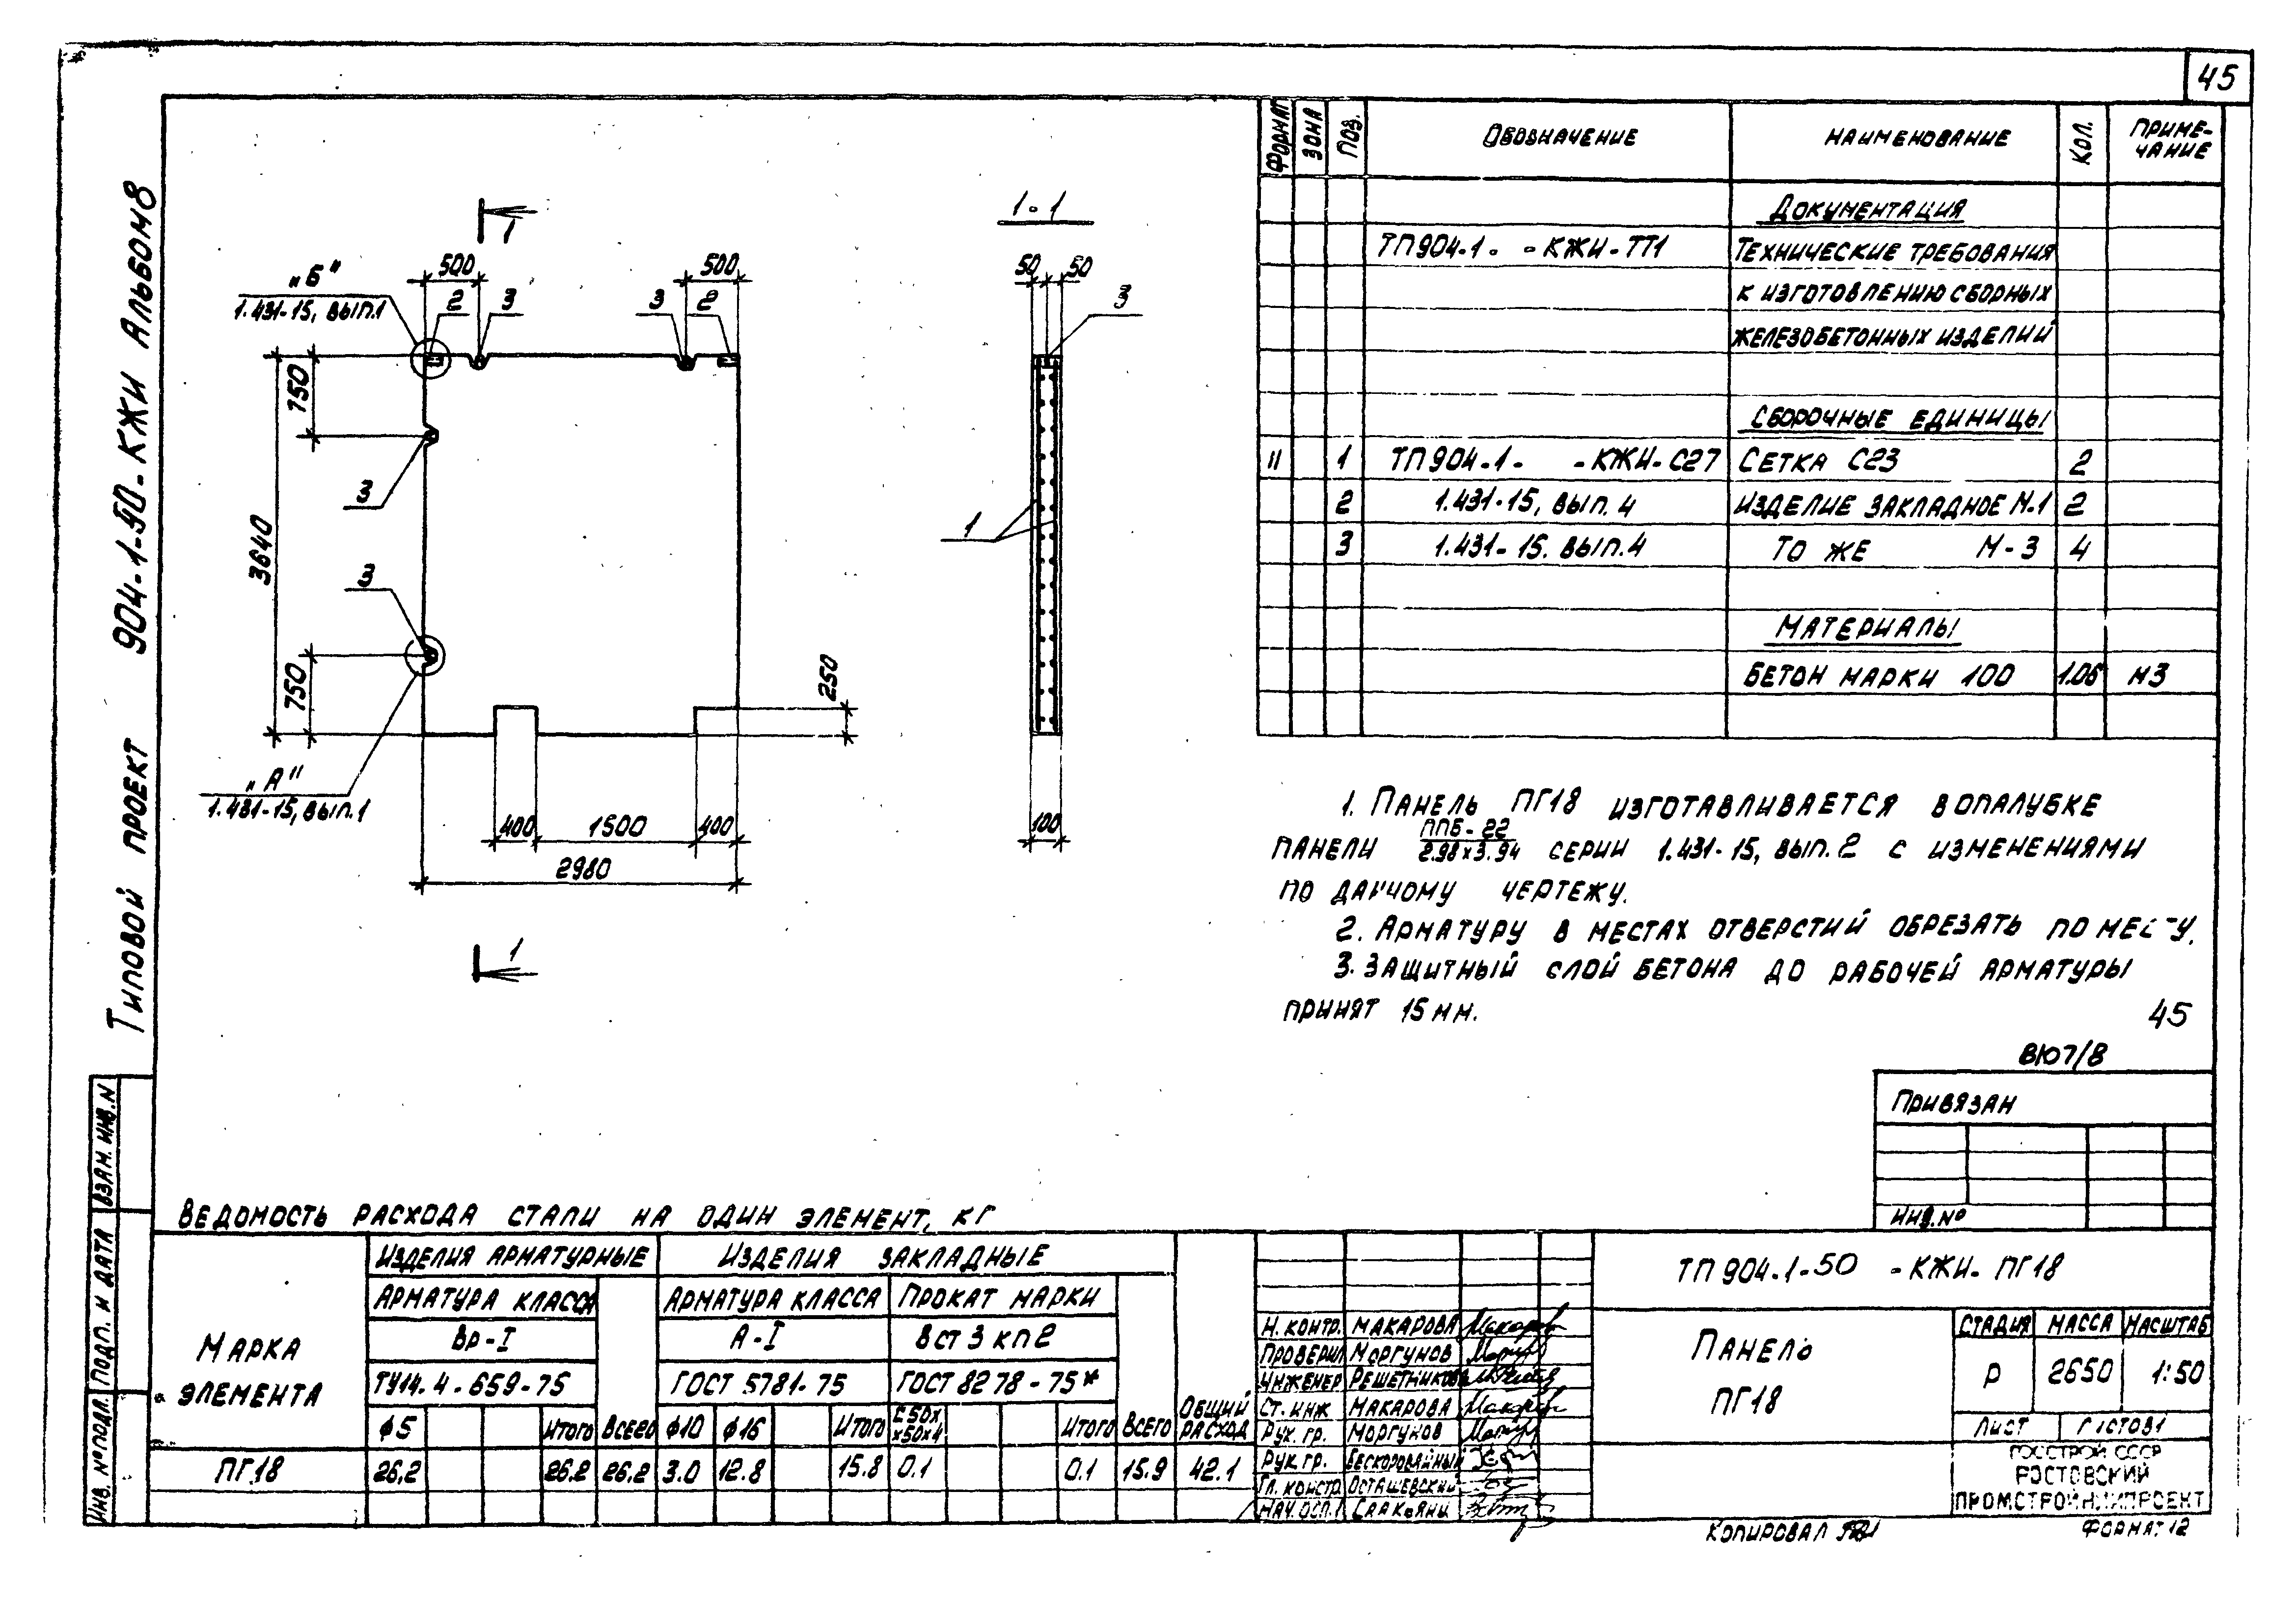 45
Типовой проект 904-1-50-КЖИ Альбом 8
1
500
500
„Б“
1.431-15, вып.1
2
3
3
2
750
3
3640
3
750
250
„А“
1.431-15, вып.1
400
1500
400
2980
1
1-1
50
50
3
1
100
Формат
Зона
Поз.
Обозначение
Наименование
Кол.
Приме-
чание
Документация
ТП904-1- -КЖИ-ТТ1 Технические требования
к изготовлению сборных
железобетонных изделий
Сборочные единицы
11 1 ТП904-1- -КЖИ-С27 Сетка С23 2
2 1.431-15, вып.4 Изделие закладное М-1 2
3 1.431-15. вып.4 То же М-3 4
Материалы
Бетон марки 100 1.06 м3
1. Панель ПГ18 изготавливается в опалубке
панели ППБ-22
2.98х3.94 серии 1.431-15, вып.2 с изменениями
по данному чертежу.
2. Арматуру в местах отверстий обрезать по месту.
3. Защитный слой бетона до рабочей арматуры
принят 15мм.
45
ВЮ7/8
Привязан
Инв.№
Взам. инв.N
Подп. и дата
Инв. № подл.
Ведомость расхода стали на один элемент, кг
Марка
элемента
Изделия арматурные
Изделия закладные
Общий
расход
Арматура класса
Арматура класса
Прокат марки
Вр-I
А-I
Вст3 кп2
ТУ14.4-659-75
ГОСТ 5781-75
ГОСТ 8278-75*
ф5 Итого Всего ф10 ф16 Итого С50х
х50х4 Итого Всего
ПГ18 26,2 26.2 26.2 3.0 12.8 15.8 0.1 0.1 15.9 42.1
Н. контр. Макарова
Проверил Моргунов
Инженер Решетникова
Ст. инж Макарова
Рук. гр. Моргунов
Рук гр. Бескоровайный
Гл. констр. Осташевский
Нач. осп.1 Саакьянц
ТП 904.1-50 -КЖИ- ПГ18
Панель
ПГ18
Стадия Масса Масштаб
Р 2650 1:50
Лист Листов1
Госстрой СССР
Ростовский
Промстройниипроект
Копировал
Формат 12